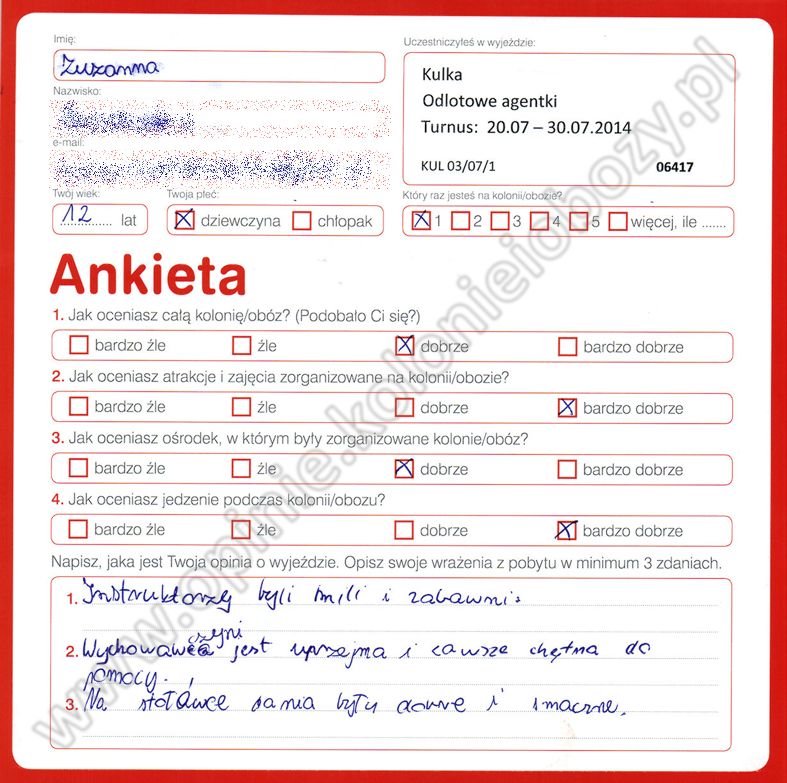 Imię:
Zuzanna
Nazwisko:
e-mail:
Twój wiek:
12 lat
Twoja płeć:
dziewczyna
chłopak
Uczestniczyłeś w wyjeździe:
Kulka
Odlotowe agentki
Turnus: 20.07 – 30.07.2014
KUL 03/07/1 06417
Który raz jesteś na kolonii/obozie?
1 2 3 4 5 więcej, ile .......
Ankieta
1. Jak oceniasz całą kolonię/obóz? (Podobało Ci się?)
bardzo źle źle dobrze bardzo dobrze
2. Jak oceniasz atrakcje i zajęcia zorganizowane na kolonii/obozie?
bardzo źle źle dobrze bardzo dobrze
3. Jak oceniasz ośrodek, w którym były zorganizowane kolonie/obóz?
bardzo źle źle dobrze bardzo dobrze
4. Jak oceniasz jedzenie podczas kolonii/obozu?
bardzo źle źle dobrze bardzo dobrze
Napisz, jaka jest Twoja opinia o wyjeździe. Opisz swoje wrażenia z pobytu w minimum 3 zdaniach.
1. Instruktorzy byli mili i zabawni.
2. Wychowawczyni jest uprzejma i zawsze chętna do
pomocy.
3. Na stołówce dania były dobre i smaczne.
www.opinie.kolonieiobozy.pl